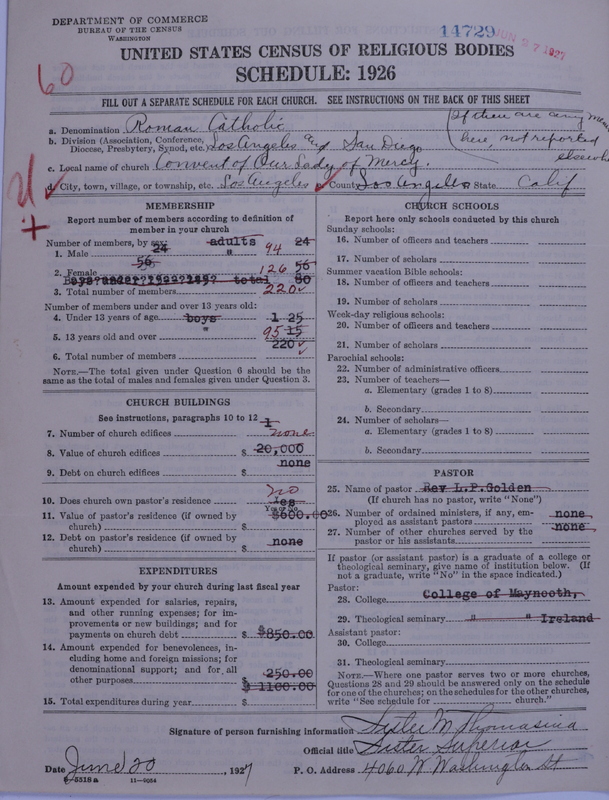 DEPARTMENT OF COMMERCE
BUREAU OF THE CENSUS
WASHINGTON
14729
JUN 27 1927
60
UNITED STATES CENSUS OF RELIGIOUS BODIES
SCHEDULE: 1926
FILL OUT A SEPARATE SCHEDULE FOR EACH CHURCH. SEE INSTRUCTIONS ON THE BACK OF THIS SHEET
If there are any
here, not reported
a. Denomination Roman Catholic
b. Division (Association, Conference, Diocese, Presbytery, Synod, etc.) Los Angeles and San Diego
c. Local name of church Convent of Our Lady of Mercy.
d. City, town, village, or township, etc. Los Angeles County Los Angeles State Calif
MEMBERSHIP
Report number of members according to definition of
member in your church
Number of members, by sex: adults 24
1. Male 24 " 94
56
2. Female 126 56
total 80
3. Total number of members 220
Number of members under and over 13 years old:
4. Under 13 years of age boys 1 25
5. 13 years old and over " 95 15
220
6. Total number of members
NOTE.—The total given under Question 6 should be
same as the total of males and females given under Question 3.
CHURCH BUILDINGS
See instructions, paragraphs 10 to 12
1
7. Number of church edifices none
8. Value of church edifices $ 20,000
9. Debt on church edifices $ none
10. Does church own pastor's residence no Yes
Yes or No
11. Value of pastor's residence (if owned by
church) $ $600.00
12. Debt on pastor's residence (if owned by
church) $ none
EXPENDITURES
Amount expended by your church during last fiscal year
13. Amount expended for salaries, repairs,
and other running expenses; for im-
provements or new buildings; and for
payments on church debt $ $850.00
14. Amount expended for benevolences, in-
cluding home and foreign missions; for
denominational support; and for all
other purposes $ 250.00
$ 1100.00
15. Total expenditures during year $
CHURCH SCHOOLS
Report here only schools conducted by this church
Sunday schools:
16. Number of officers and teachers
17. Number of scholars
Summer vacation Bible schools:
18. Number of officers and teachers
19. Number of scholars
Week-day religious schools:
20. Number of officers and teachers
21. Number of scholars
Parochial schools:
22. Number of administrative officers
23. Number of teachers—
a. Elementary (grades 1 to 8)
b. Secondary
24. Number of scholars—
a. Elementary (grades 1 to 8)
b. Secondary
PASTOR
25. Name of pastor Rev L.P.Golden
(If church has no pastor, write "None")
26. Number of ordained ministers, if any, em-
ployed as assistant pastors none
27. Number of other churches served by the
pastor or his assistants none
If pastor (or assistant pastor) is a graduate of a college or
theological seminary, give name of institution below. (If
not a graduate, write "No" in the space indicated.)
Pastor:
28. College College of Maynooth,
29. Theological seminary " " Ireland
Assistant pastor:
30. College
31. Theological seminary
NOTE.—Where one pastor serves two or more churches,
Questions 28 and 29 should be answered only on the schedule
for one of the churches; on the schedules for the other churches,
write "See schedule for church."
Signature of person furnishing information Sister M Thomasina
Official title Sister Superior
Date June 20, 1927 P. O. Address 4060 W Washington St
8-5518 a 11-9054